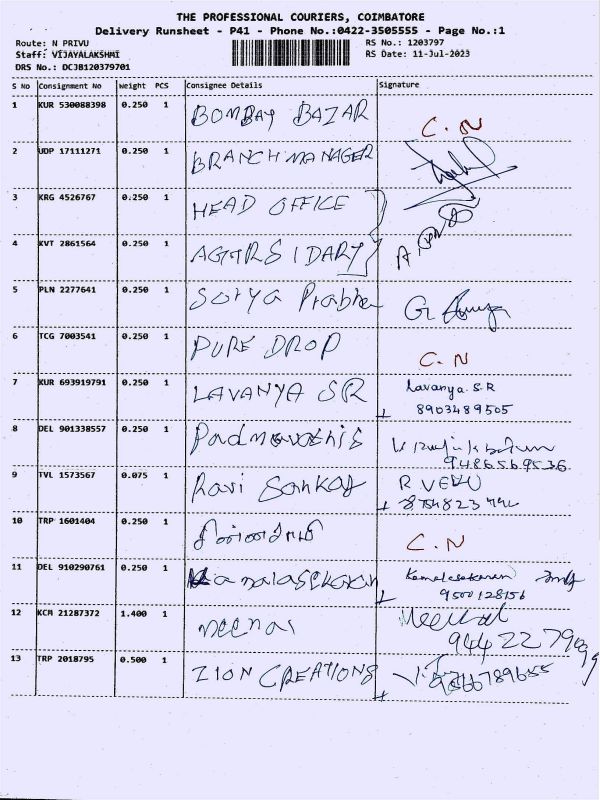 THE PROFESSIONAL COURIERS, COIMBATORE
Delivery Runsheet - P41 - Phone No.:0422-3505555 - Page No.:1
Route: N PRIVU RS No.: 1203797
Staff: VIJAYALAKSHMI RS Date: 11-Jul-2023
DRS No.: DCJB120379701
S No Consignment No Weight PCS Consignee Details Signature
1 KUR 530088398 0.250 1 BOMBAY BAZAR C.N
2 UDP 17111271 0.250 1 BRANCH MANAGER
3 KRG 4526767 0.250 1 HEAD OFFICE
4 KVT 2861564 0.250 1
5 PLN 2277641 0.250 1 Sorya Prabha G
6 TCG 7003541 0.250 1 PURE DROP C.N
7 KUR 693919791 0.250 1 LAVANYA SR Lavanya.S.R
8903489505
8 DEL 901338557 0.250 1
9486569536
9 TVL 1573567 0.075 1 Ravi Sankar R VELU
10 TRP 1601404 0.250 1 C.N
11 DEL 910290761 0.250 1 Kamalasekaran Kamalasekaran
9500128156
12 KCM 21287372 1.400 1 meenai
13 TRP 2018795 0.500 1 ZION CREATIONS